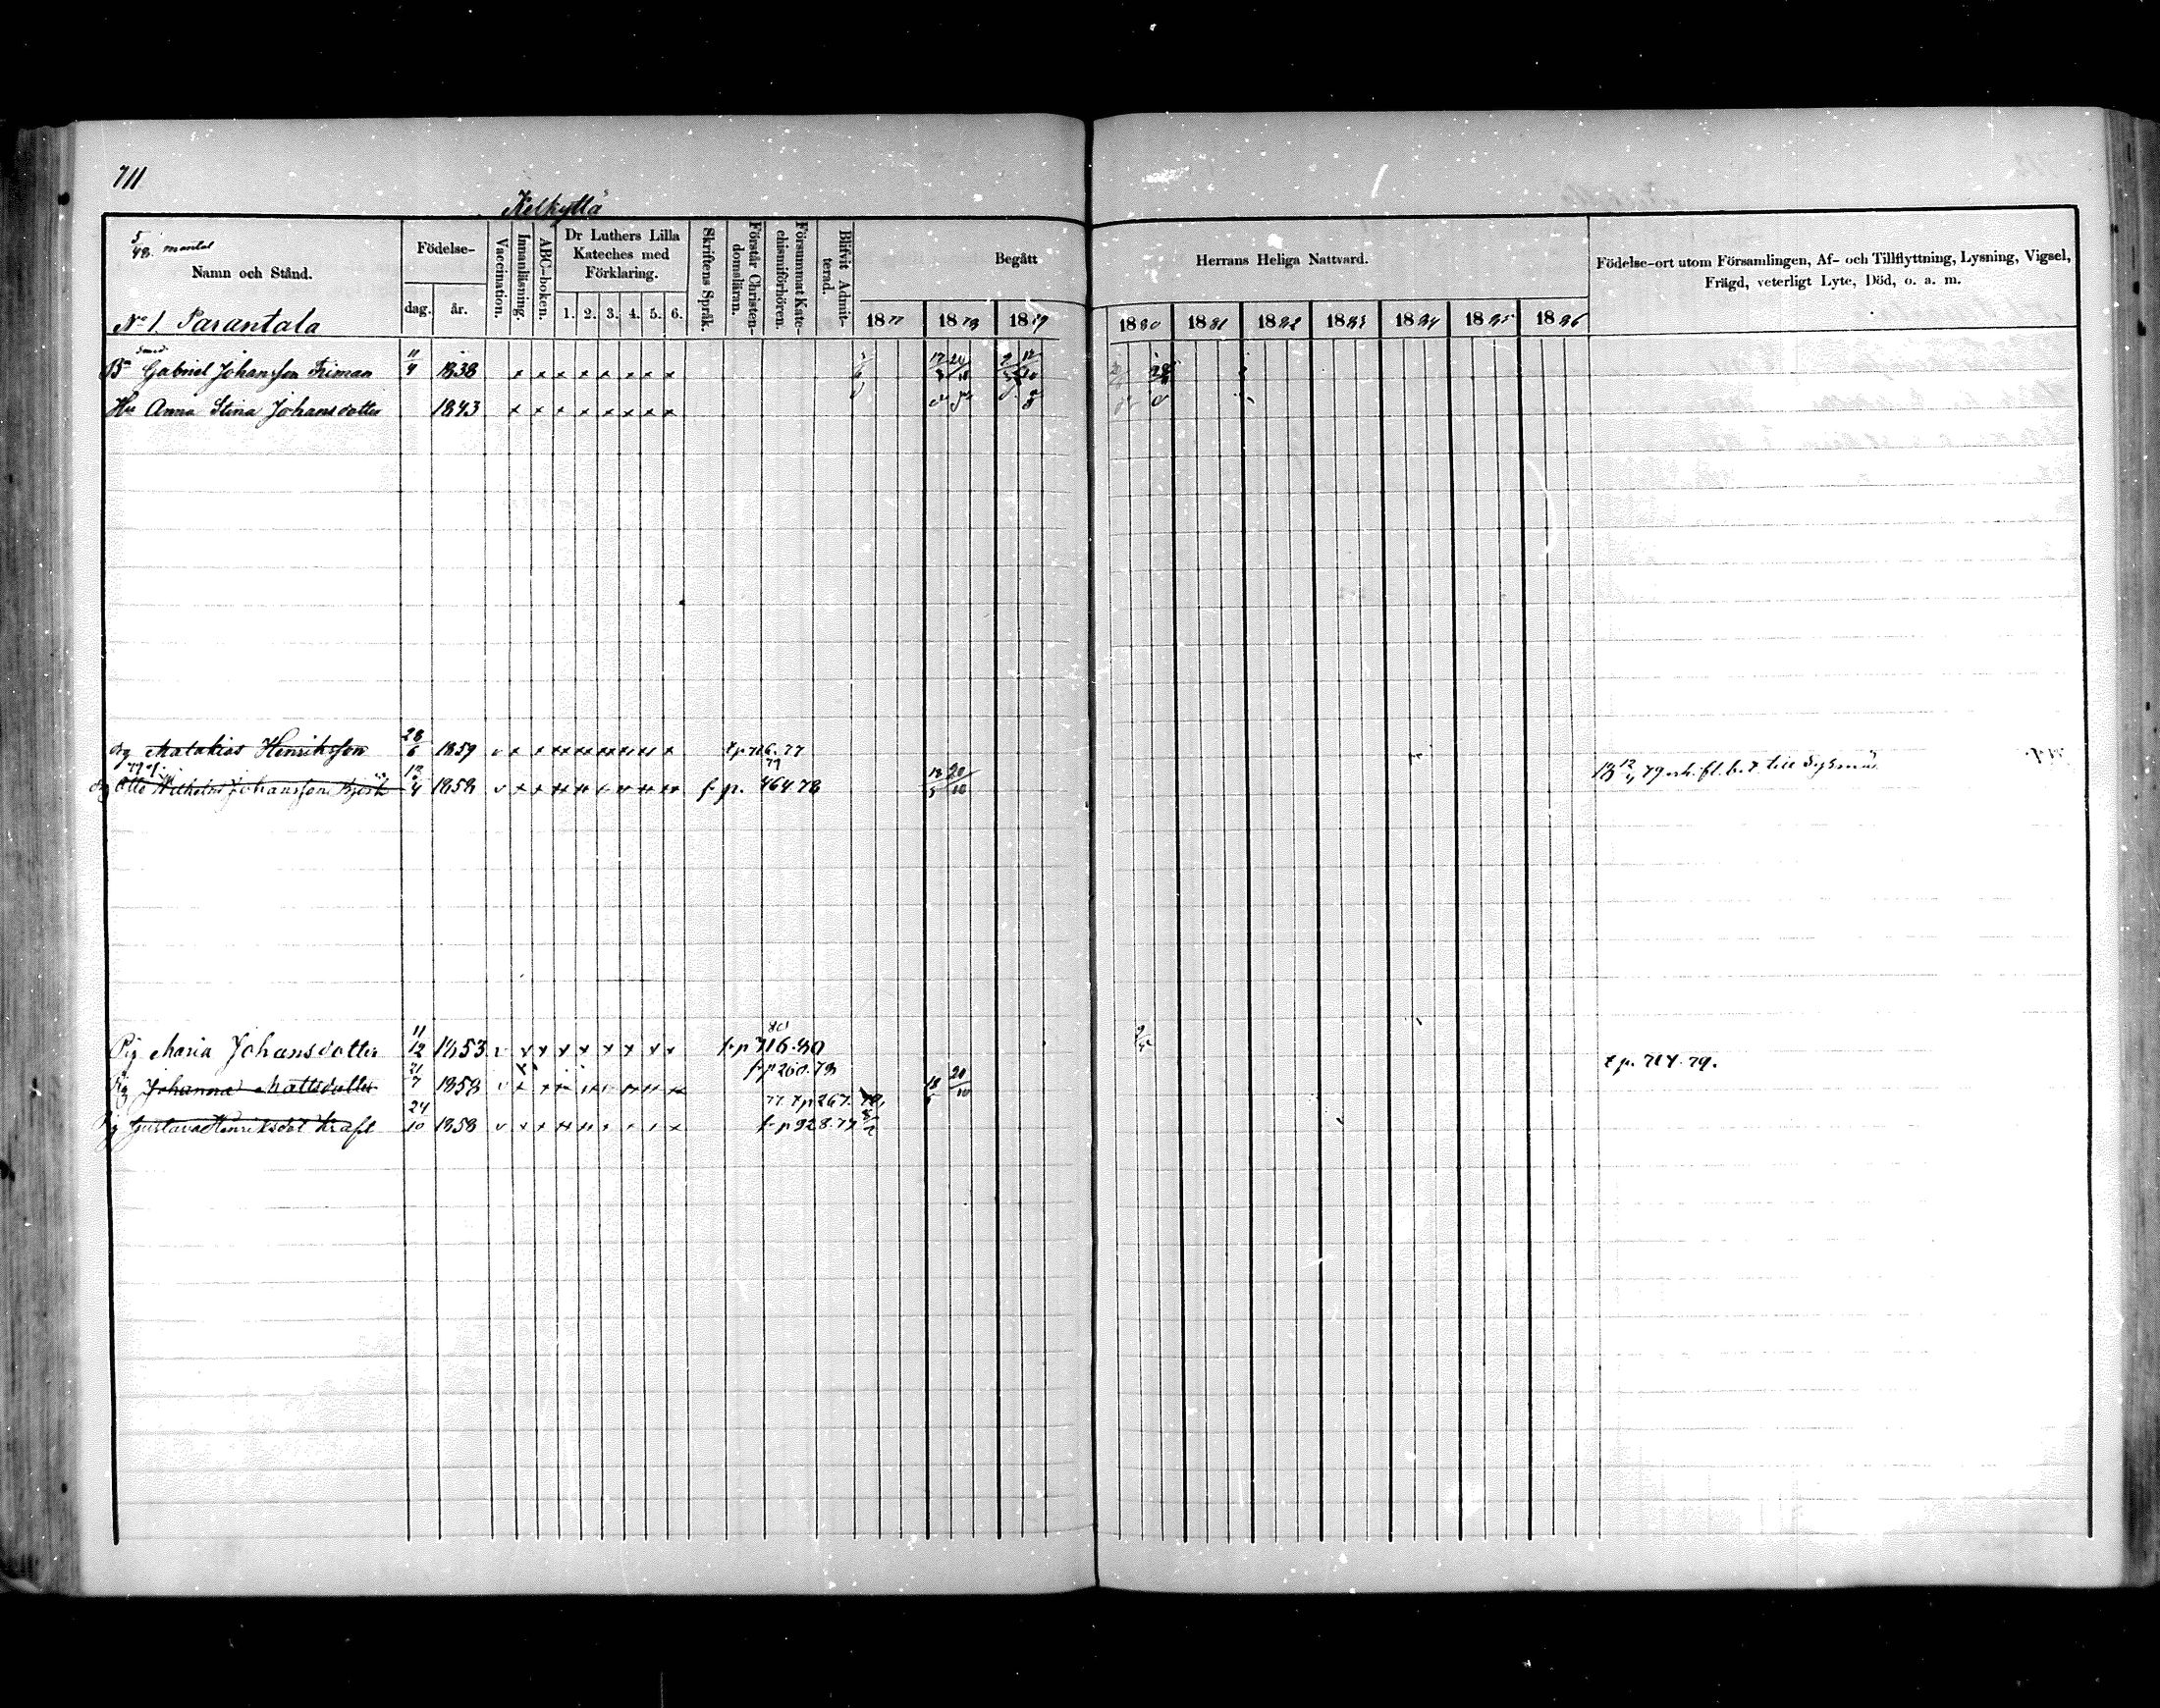 711
Kelkyllä
5/48 mantal
Namn och Stånd.
No 1 Parantala
Födelse-
dag. år.
Vaccination.
Innanläsning.
ABC-boken.
Dr Luthers Lilla
Kateches med
Förklaring.
1. 2. 3. 4. 5. 6.
Skriftens Språk.
Förstår Christen-
domsläran.
Försummat Kate-
chismiförhören.
Blifvit Admit-
terad.
Begått Herrans Heliga Nattvard.
1877 1878 1879 1880 1881 1882 1883 1884 1885 1886
Födelse-ort utom Församlingen, Af- och Tillflyttning, Lysning, Vigsel,
Frägd, veterligt Lyte, Död, o. a. m.
Smed
Bn Gabriel Johansson Friman 11/4 1838 x x x x x x x x
Hu Anna Stina Johansdotter 1843 x x x x x x x x
Drg Malakias Henriksson 28/6 1859 t.p. 716. 77
Otto Wilhelm Johansson Björk 12/4 1858 f. p. 464 78
till Sysmä
Pig Maria Johansdotter 11/12 1853 f.p 716. 80
Pig Johanna Mattsdotter 21/7 1858 f.p 260. 78 t.p. 714. 79.
77 t.p 267.
Pig Gustava Henriksdot Kraft 24/10 1858 f.p 928. 77